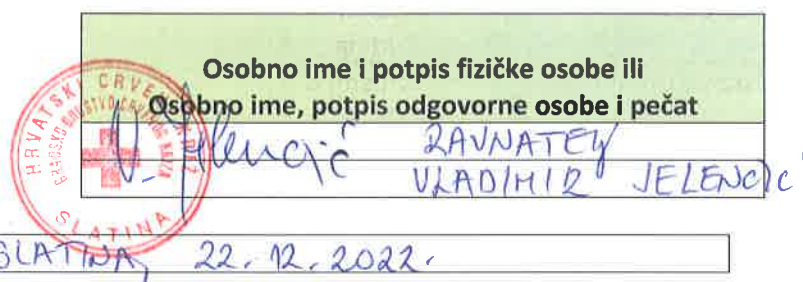 Osobno ime i potpis fizičke osobe ili
Osobno ime, potpis odgovorne osobe i pečat
HRVATSKI CRVENI KRIŽ
GRADSKO DRUŠTVO CRVENOG KRIŽA
SLATINA
V. Jelenčić RAVNATELJ
VLADIMIR JELENČIĆ
SLATINA, 22. 12. 2022.